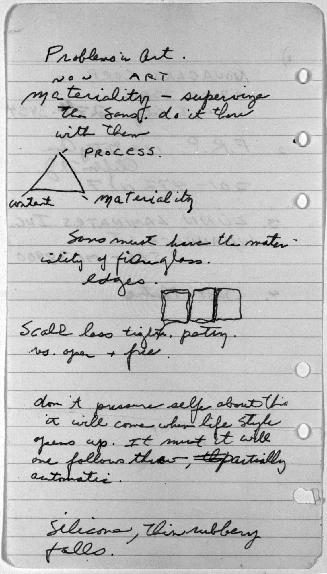 Problems in Art.
NON ART
materiality – supervize
the Sans, do it there
with them
PROCESS.
content materiality
Sans must have the mater-
iality of fiberglass.
edges.
Scale less tight, petty.
vs. open + free
don't pressure self about this
it will come when life style
opens up. It must it will
one follows the partially
automatic.
Silicone, thin rubbery
falls.